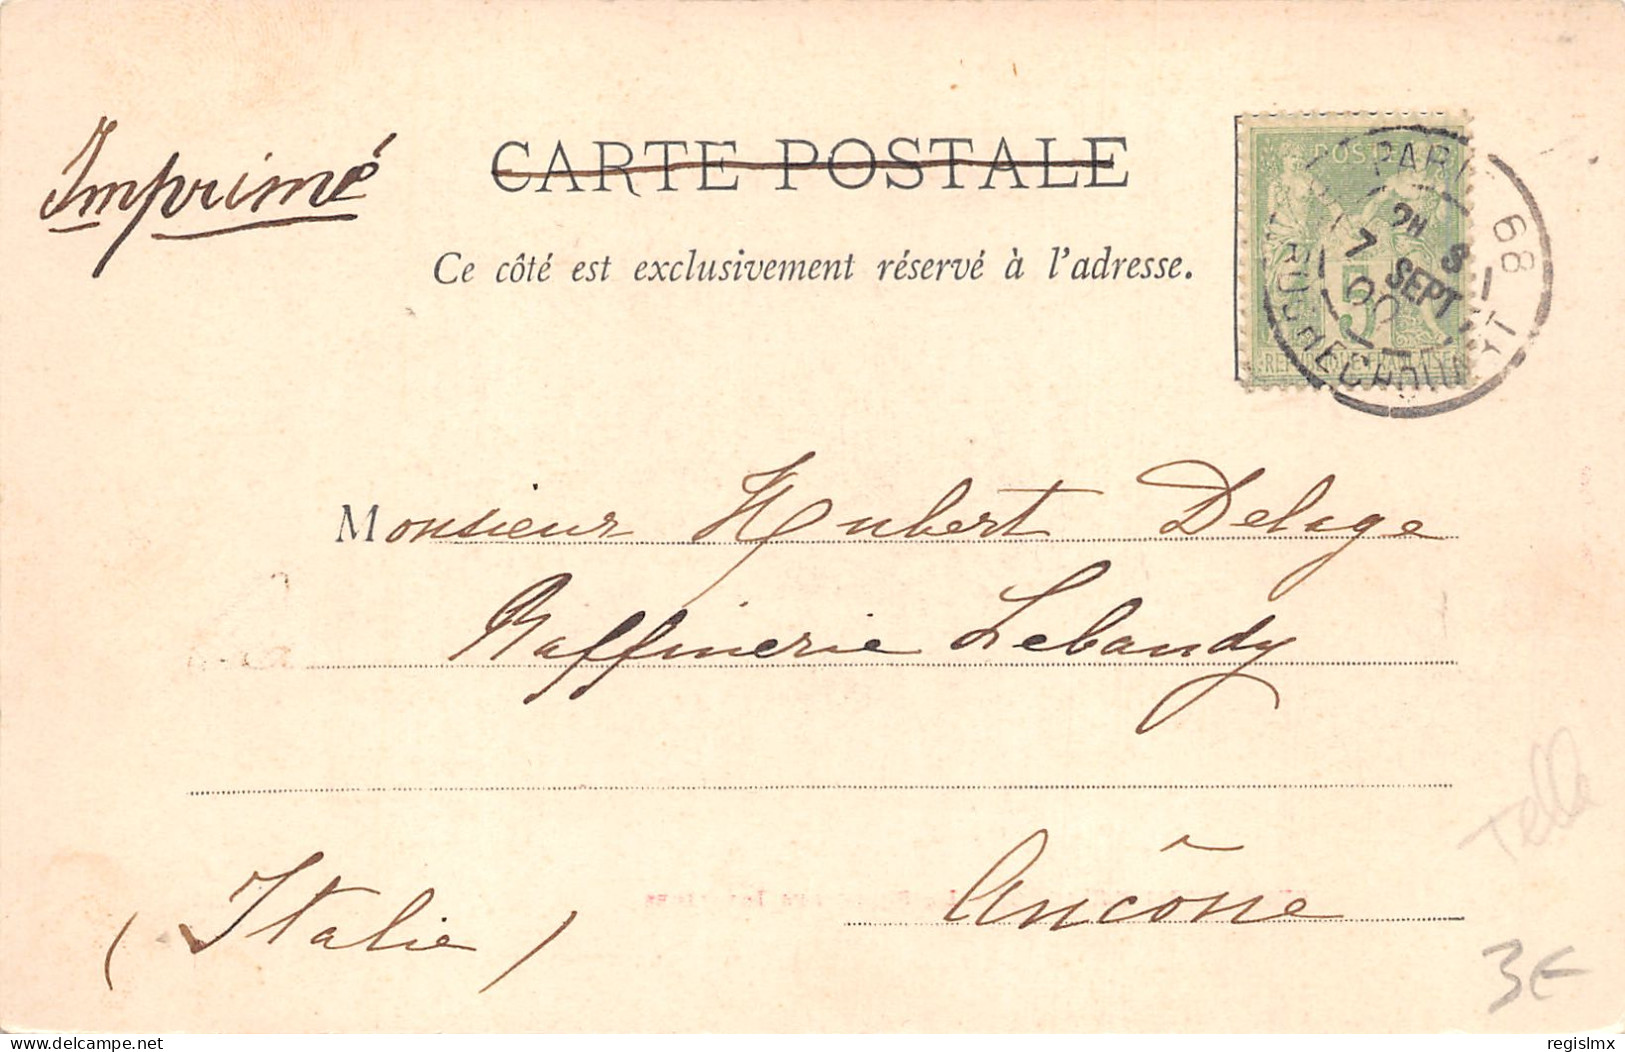 Imprimé
CARTE POSTALE
Ce côté est exclusivement réservé à l'adresse.
POSTES
REPUBLIQUE FRANCAISE
5
PARIS 68
7 SEPT 00
Monsieur Hubert Delage
Raffinerie Lebaudy
Ancône
(Italie)
Telle
3€
www.delcampe.net
regislmx